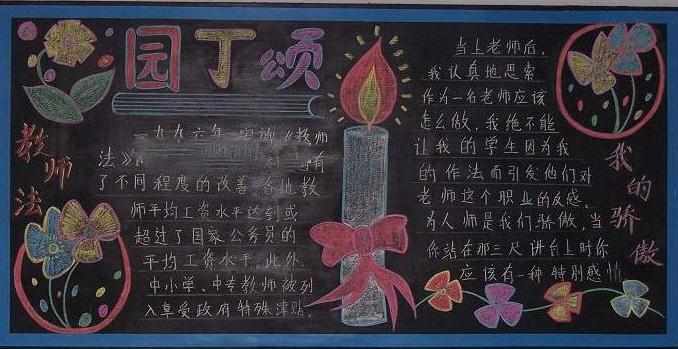 园丁颂
教师法
一九九六年实施《教师
法》
了不同程度的改善 各地教
师平均工资水平达到或
超过了国家公务员的
平均工资水平 此外
中小学、中专教师被列
入享受政府特殊津贴。
当上老师后,
我认真地思索
作为一名老师应该
怎么做,我绝不能
让我的学生因为我
的作法而引发他们对
老师这个职业的反感。
为人师是我们骄傲,当
你站在那三尺讲台上时你
应该有一种特别感情
我的骄傲